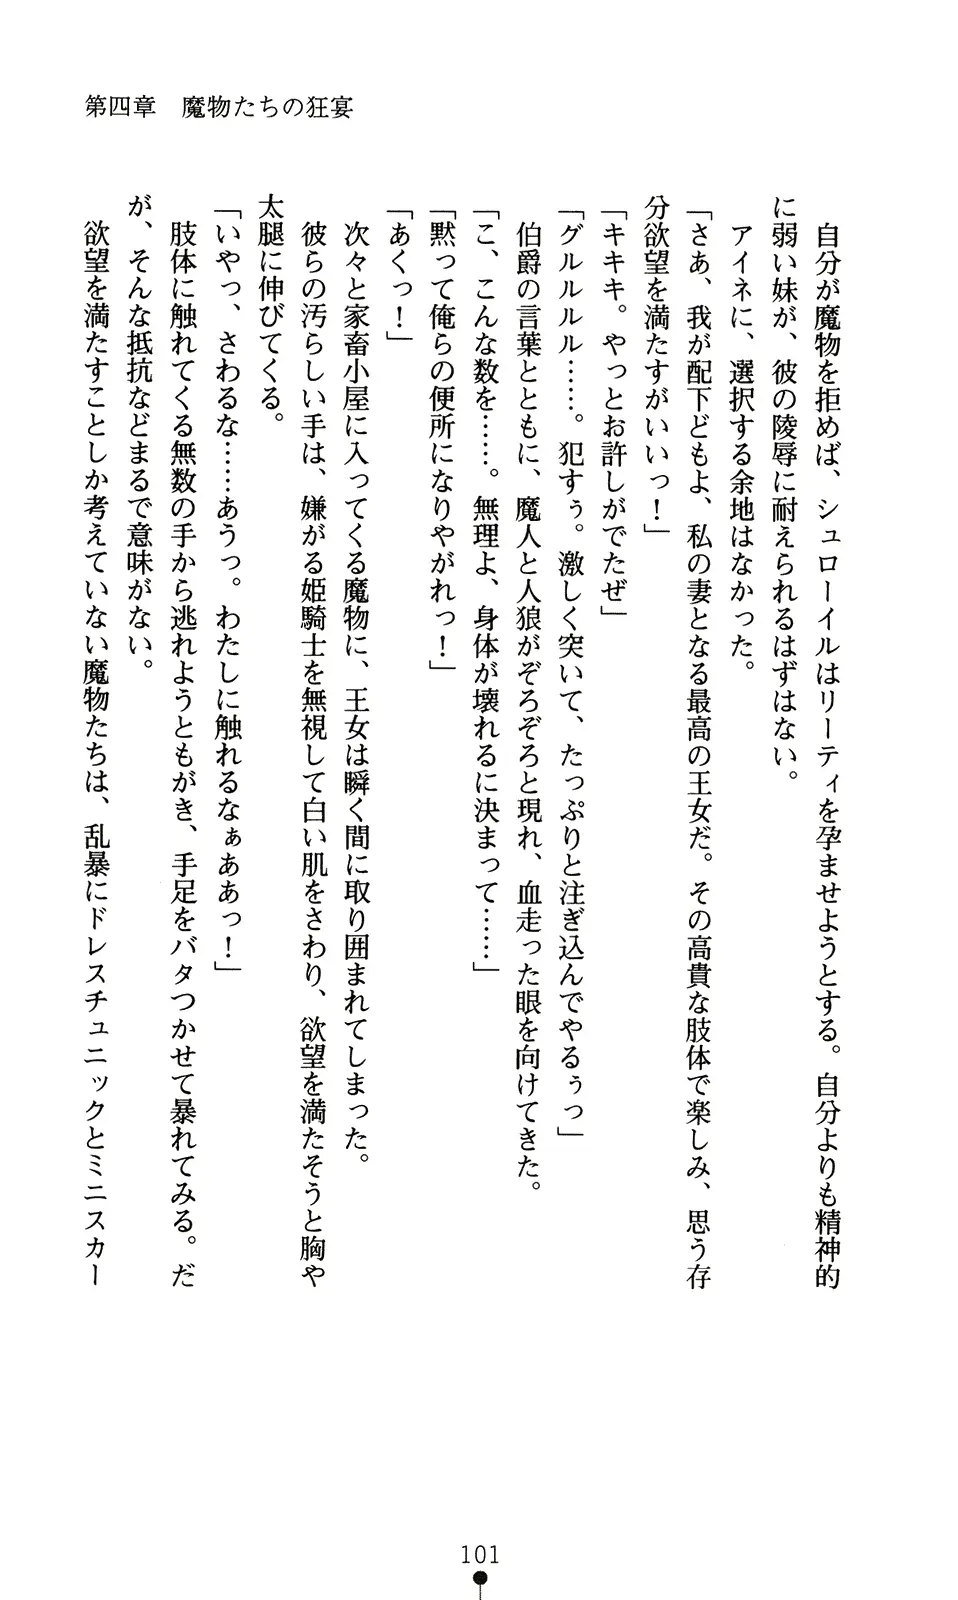 第四章　魔物たちの狂宴
自分が魔物を拒めば、シュローイルはリーティを孕ませようとする。自分よりも精神的
に弱い妹が、彼の陵辱に耐えられるはずはない。
アイネに、選択する余地はなかった。
「さあ、我が配下どもよ、私の妻となる最高の王女だ。その高貴な肢体で楽しみ、思う存
分欲望を満たすがいいっ！」
「キキキ。やっとお許しがでたぜ」
「グルルルル……。犯すぅ。激しく突いて、たっぷりと注ぎ込んでやるぅっ」
伯爵の言葉とともに、魔人と人狼がぞろぞろと現れ、血走った眼を向けてきた。
「こ、こんな数を……。無理よ、身体が壊れるに決まって……」
「黙って俺らの便所になりやがれっ！」
「あくっ！」
次々と家畜小屋に入ってくる魔物に、王女は瞬く間に取り囲まれてしまった。
彼らの汚らしい手は、嫌がる姫騎士を無視して白い肌をさわり、欲望を満たそうと胸や
太腿に伸びてくる。
「いやっ、さわるな……あうっ。わたしに触れるなぁああっ！」
肢体に触れてくる無数の手から逃れようともがき、手足をバタつかせて暴れてみる。だ
が、そんな抵抗などまるで意味がない。
欲望を満たすことしか考えていない魔物たちは、乱暴にドレスチュニックとミニスカー
101